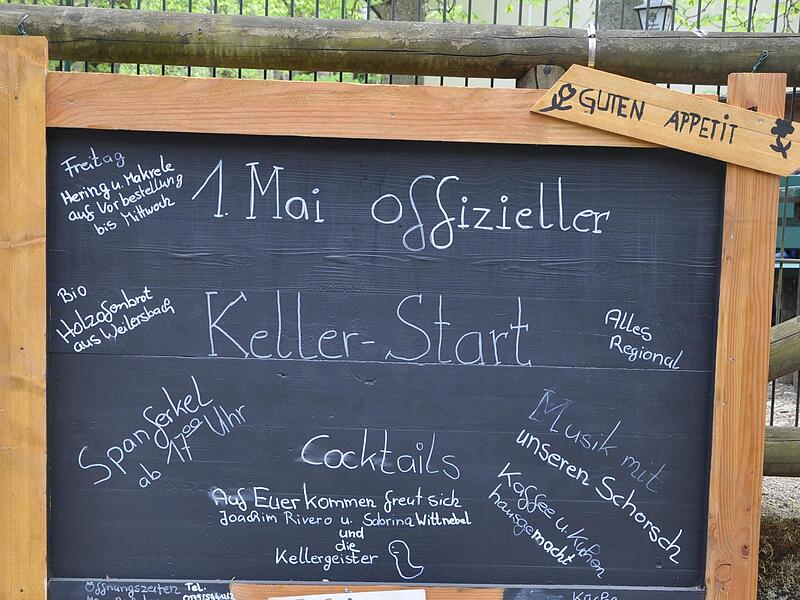 GUTEN APPETIT
Freitag
Hering u. Makrele
auf Vorbestellung
bis Mittwoch
1. Mai offizieller
Bio
Holzofenbrot
aus Weilersbach
Keller-Start
Alles
Regional
Spanferkel
ab 17⁰⁰ Uhr
Cocktails
Musik mit
unseren Schorsch
Kaffee u. Kuchen
hausgemacht
Auf Euer kommen freut sich
Joachim Rivero u. Sabrina Wittnebel
und
die
Kellergeister
Öffnungszeiten Tel.
Küche